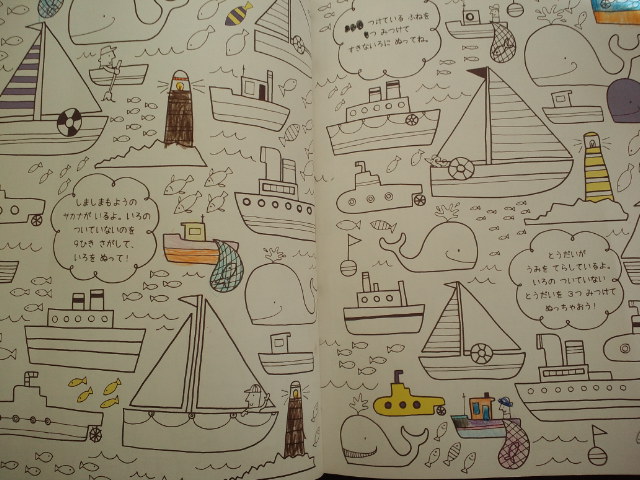 しましまもようの
サカナが いるよ。いろの
ついていないのを
9ひき さがして、
いろを ぬって!
つけている ふねを
つ みつけて
すきないろに ぬってね。
とうだいが
うみを てらしているよ。
いろの ついていない
とうだいを 3つ みつけて
ぬっちゃおう!